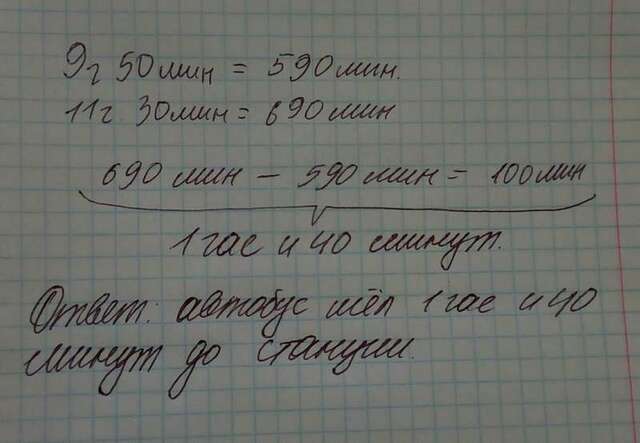 9ч 50мин = 590мин.
11ч 30мин = 690мин
690 мин - 590 мин = 100мин
1 час и 40 минут.
Ответ: автобус шёл 1 час и 40
минут до станции.